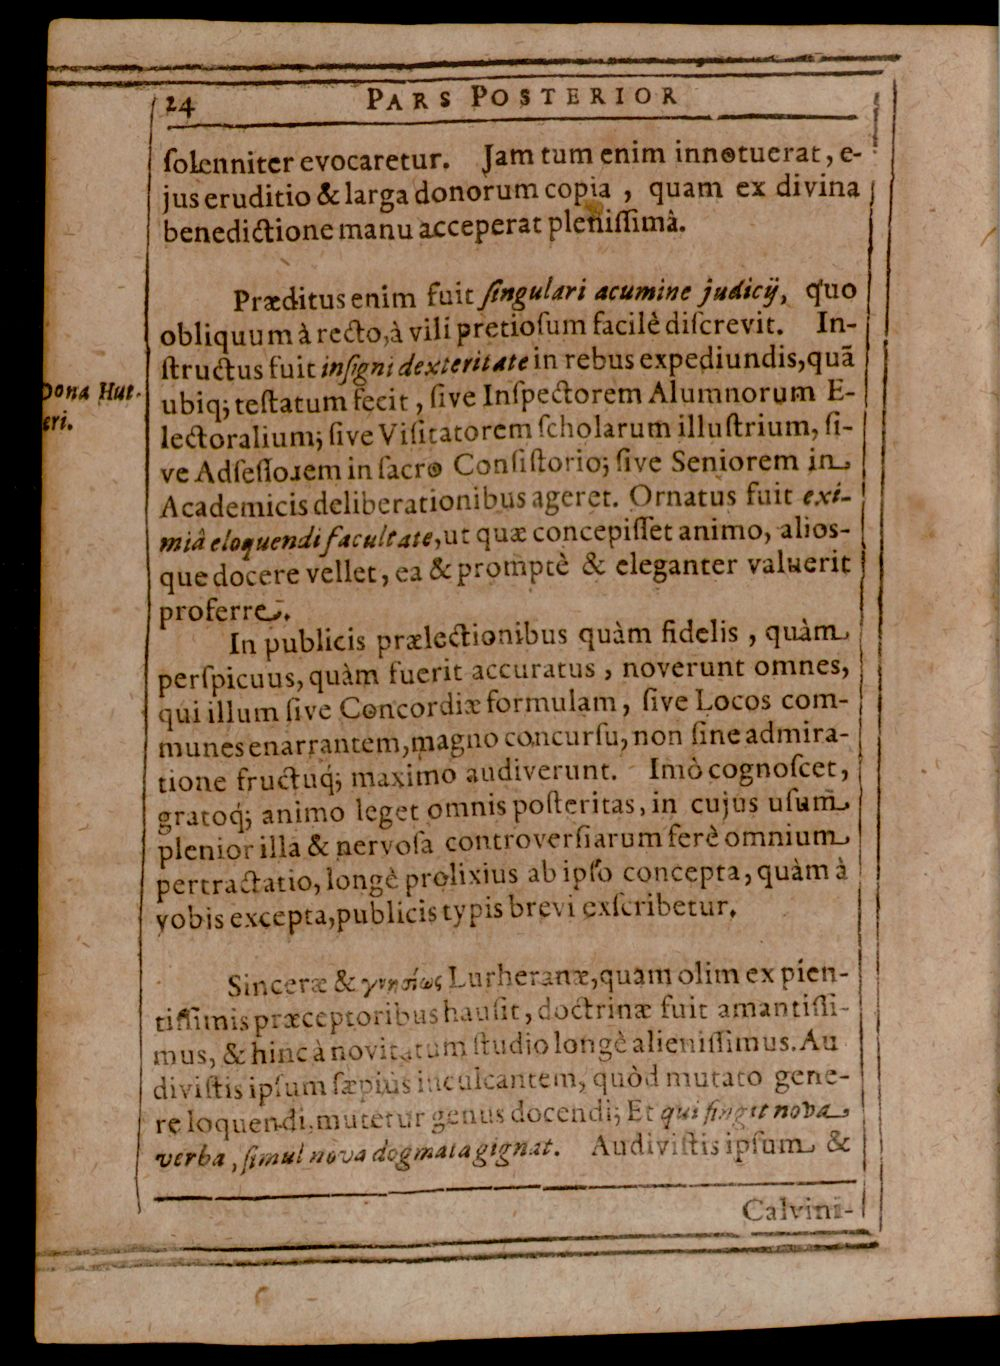 24 PARS POSTERIOR
ſolenniter evocaretur. Jam tum enim innotuerat, e-
jus eruditio & larga donorum copia , quam ex divina
benedictione manu acceperat pleniſſimâ.
Præditus enim fuit ſingulari acumine judicij, quo
obliquum à recto, à vili pretioſum facilè diſcrevit. In-
ſtructus fuit inſigni dexteritate in rebus expediundis, quã
Dona Hut-
teri.
ubiq; teſtatum fecit , ſive Inſpectorem Alumnorum E-
lectoralium; ſive Viſitatorem ſcholarum illuſtrium, ſi-
ve Adſeſſorem in ſacro Conſiſtorio; ſive Seniorem in
Academicis deliberationibus ageret. Ornatus fuit exi-
miâ eloquendi facultate, ut quæ concepiſſet animo, alios-
que docere vellet, ea & promptè & eleganter valuerit
proferre.
In publicis prælectionibus quàm fidelis , quàm
perſpicuus, quàm fuerit accuratus , noverunt omnes,
qui illum ſive Concordiæ formulam, ſive Locos com-
munes enarrantem, magno concurſu, non ſine admira-
tione fructuq́; maximo audiverunt. Imò cognoſcet,
gratoq́; animo leget omnis poſteritas, in cujus uſum
plenior illa & nervoſa controverſiarum ferè omnium
pertractatio, longè prolixius ab ipſo concepta, quàm à
vobis excepta, publicis typis brevi exſcribetur.
Sinceræ & γνησίως Lurheranæ, quam olim ex pien-
tiſſimis præceptoribus hauſit, doctrinæ fuit amantiſſi-
mus, & hinc à novitatum ſtudio longè alieniſſimus. Au
diviſtis ipſum ſæpiùs inculcantem, quòd mutato gene-
re loquendi, mutetur genus docendi; Et qui fingit nova
verba, ſimul nova dogmata gignat. Audiviſtis ipſum &
Calvini-